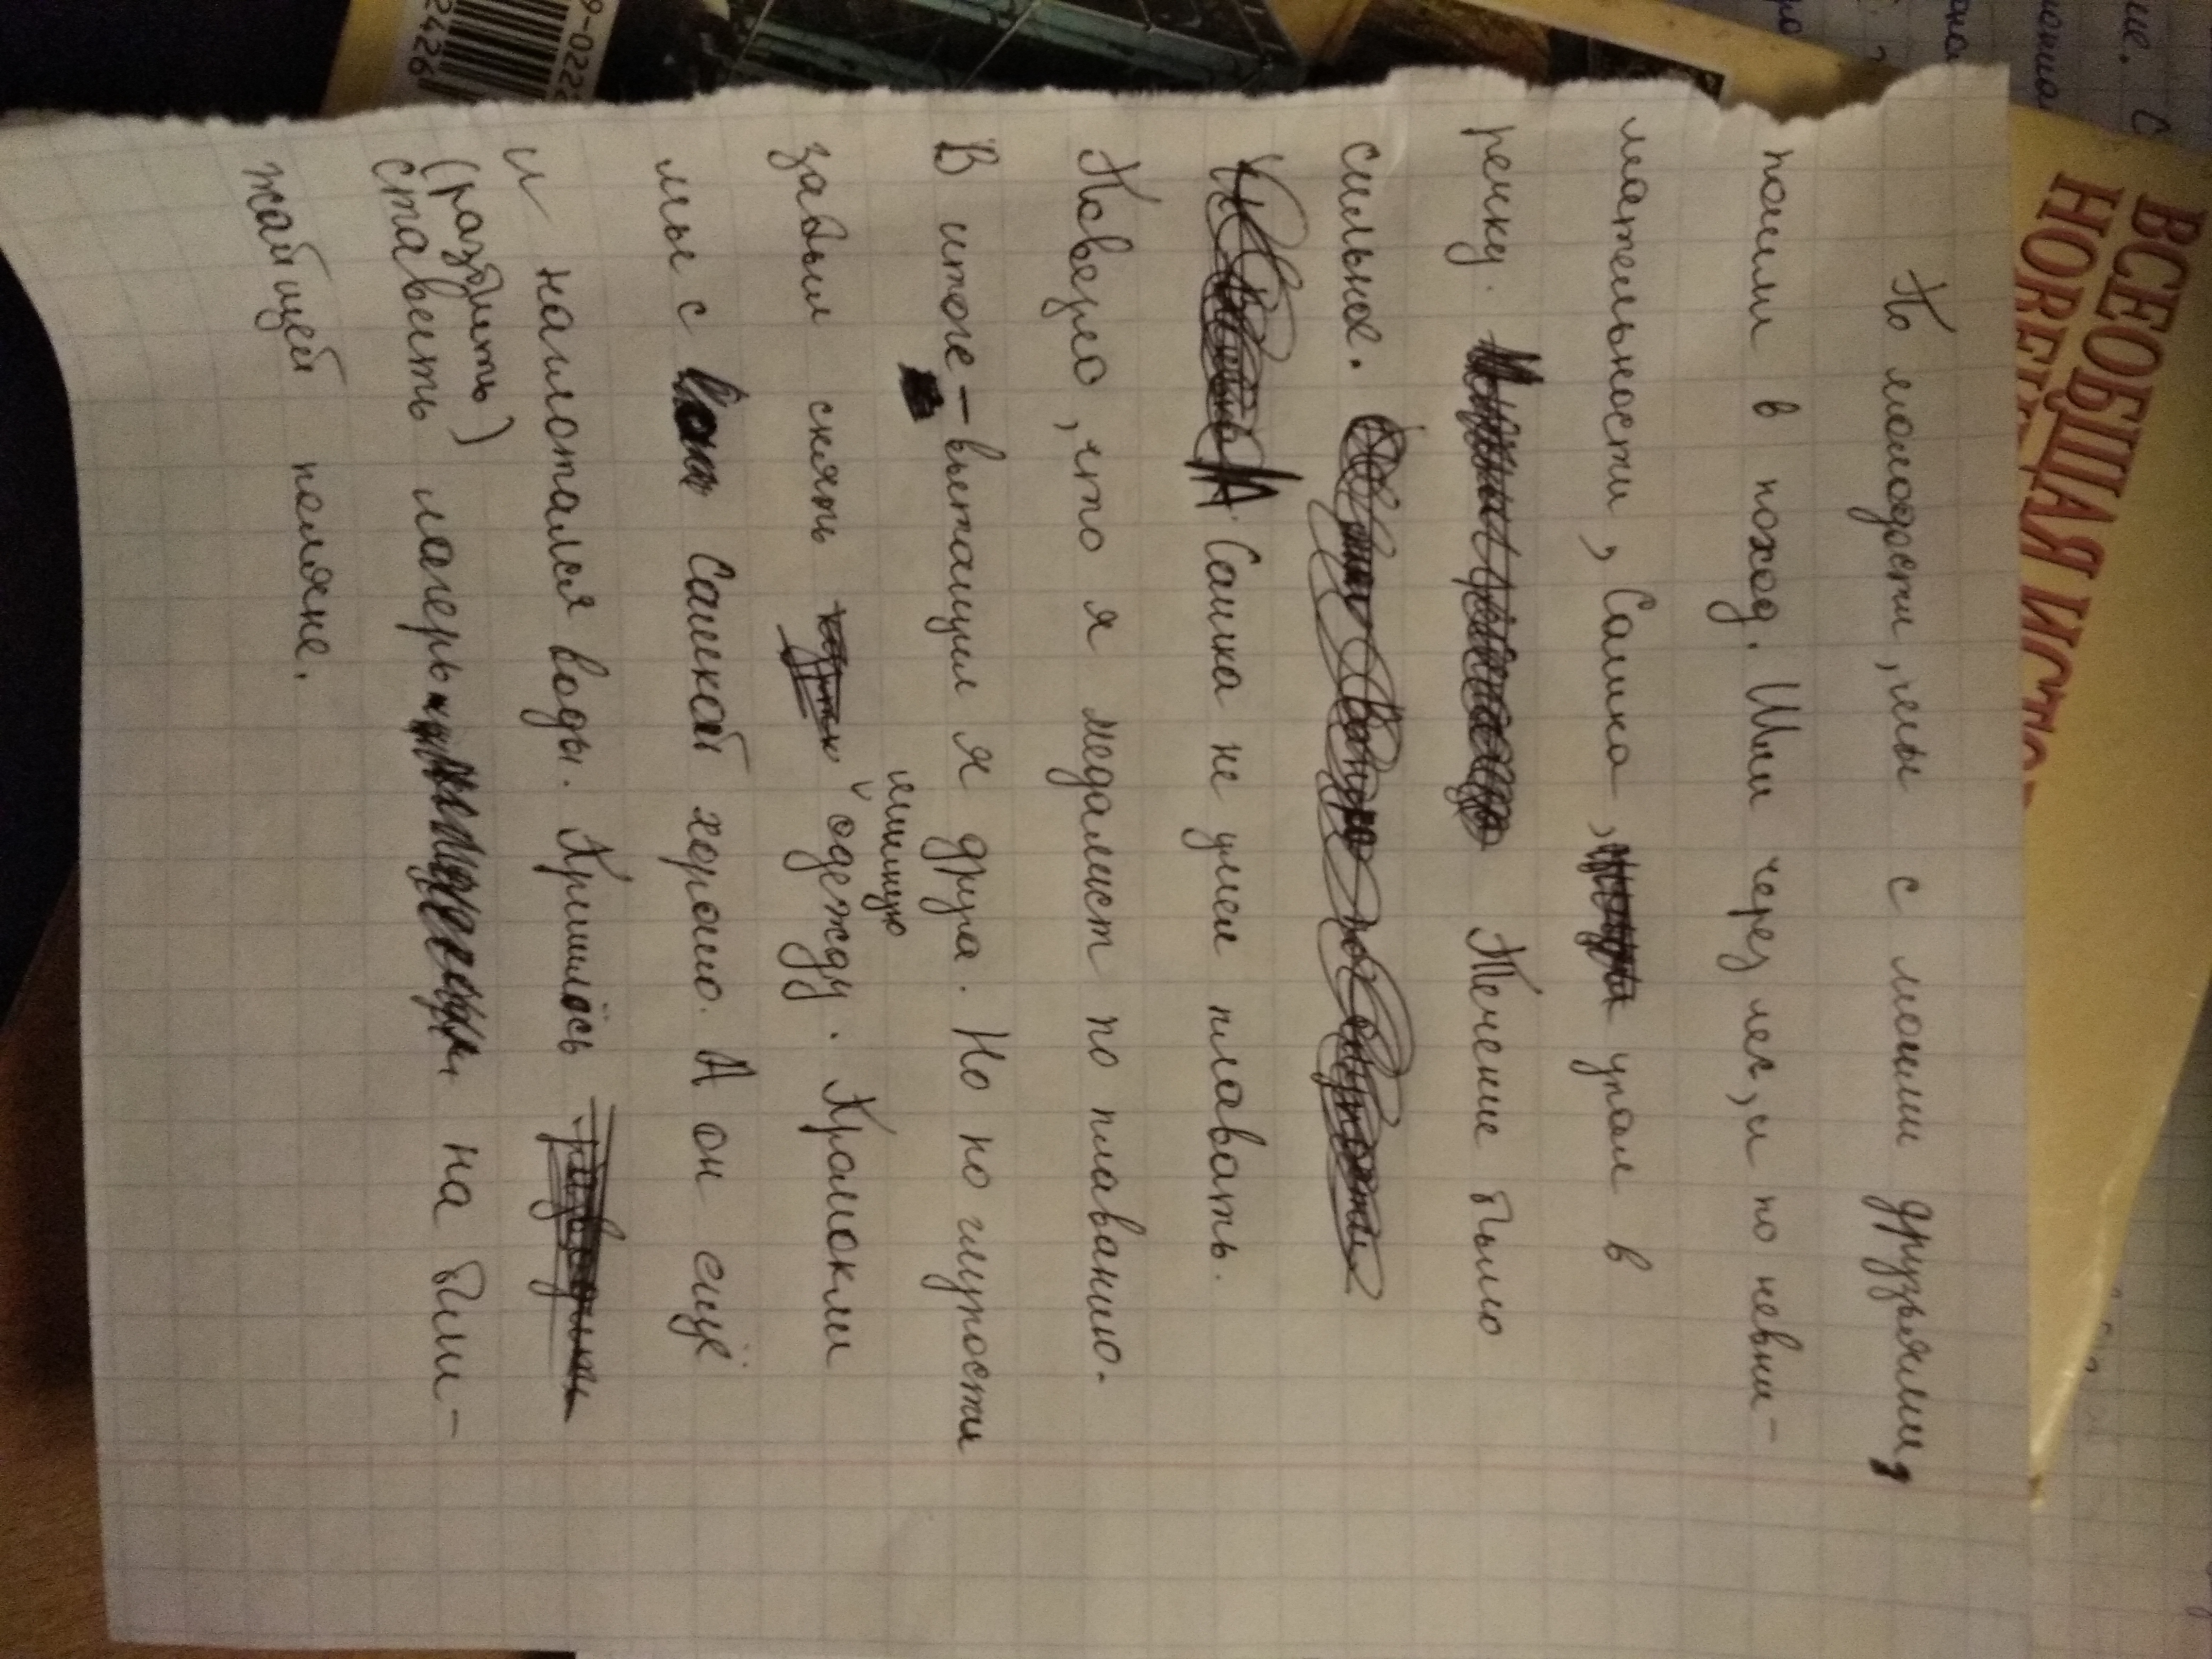 По молодости, мы с моими друзьями,
пошли в поход. Шли через лес, и по невни-
мательности, Сашка, упал в
речку. Течение было
сильное.
А Сашка не умел плавать.
Повезло, что я медалист по плаванию.
В итоге - вытащил я друга. Но по глупости
забыл снять лишнюю одежду. Промокли
мы с Сашкой хорошо. А он ещё
и наглотался воды. Пришлось
(разбить)
ставить лагерь на бли-
жайщей поляне.
ВСЕОБЩАЯ ИСТО
НОВЕ
9-022
2426